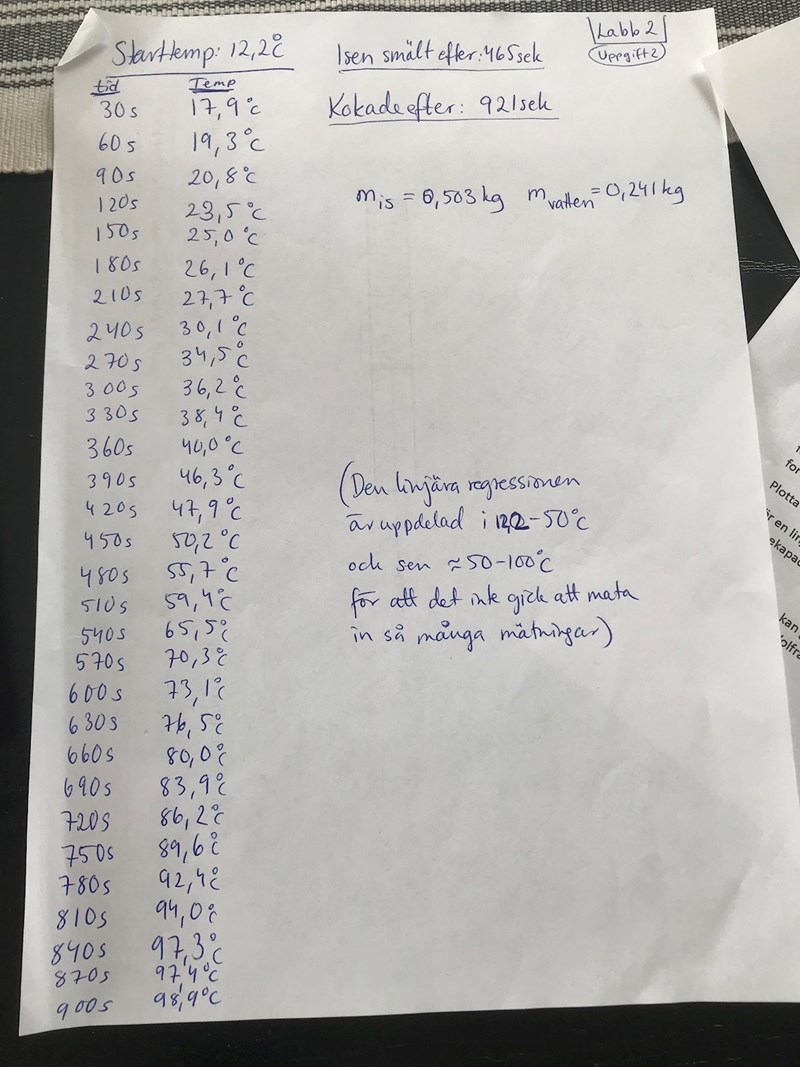 Labb 2
Uppgift 2
Starttemp: 12,2°C
Isen smält efter: 465 sek
Kokade efter: 921 sek
tid Temp
30s 17,9°C
60s 19,3°C
90s 20,8°C
120s 23,5°C
150s 25,0°C
180s 26,1°C
210s 27,7°C
240s 30,1°C
270s 34,5°C
300s 36,2°C
330s 38,4°C
360s 40,0°C
390s 46,3°C
420s 47,9°C
450s 50,2°C
480s 55,7°C
510s 59,4°C
540s 65,5°C
570s 70,3°C
600s 73,1°C
630s 76,5°C
660s 80,0°C
690s 83,9°C
720s 86,2°C
750s 89,6°C
780s 92,4°C
810s 94,0°C
840s 97,3°C
870s 97,4°C
900s 98,9°C
m is = 0,503 kg m vatten = 0,241 kg
(Den linjära regressionen
är uppdelad i 12,2-50°C
och sen ≈50-100°C
för att det inte gick att mata
in så många mätningar)
for
Plotta
en lin
kan